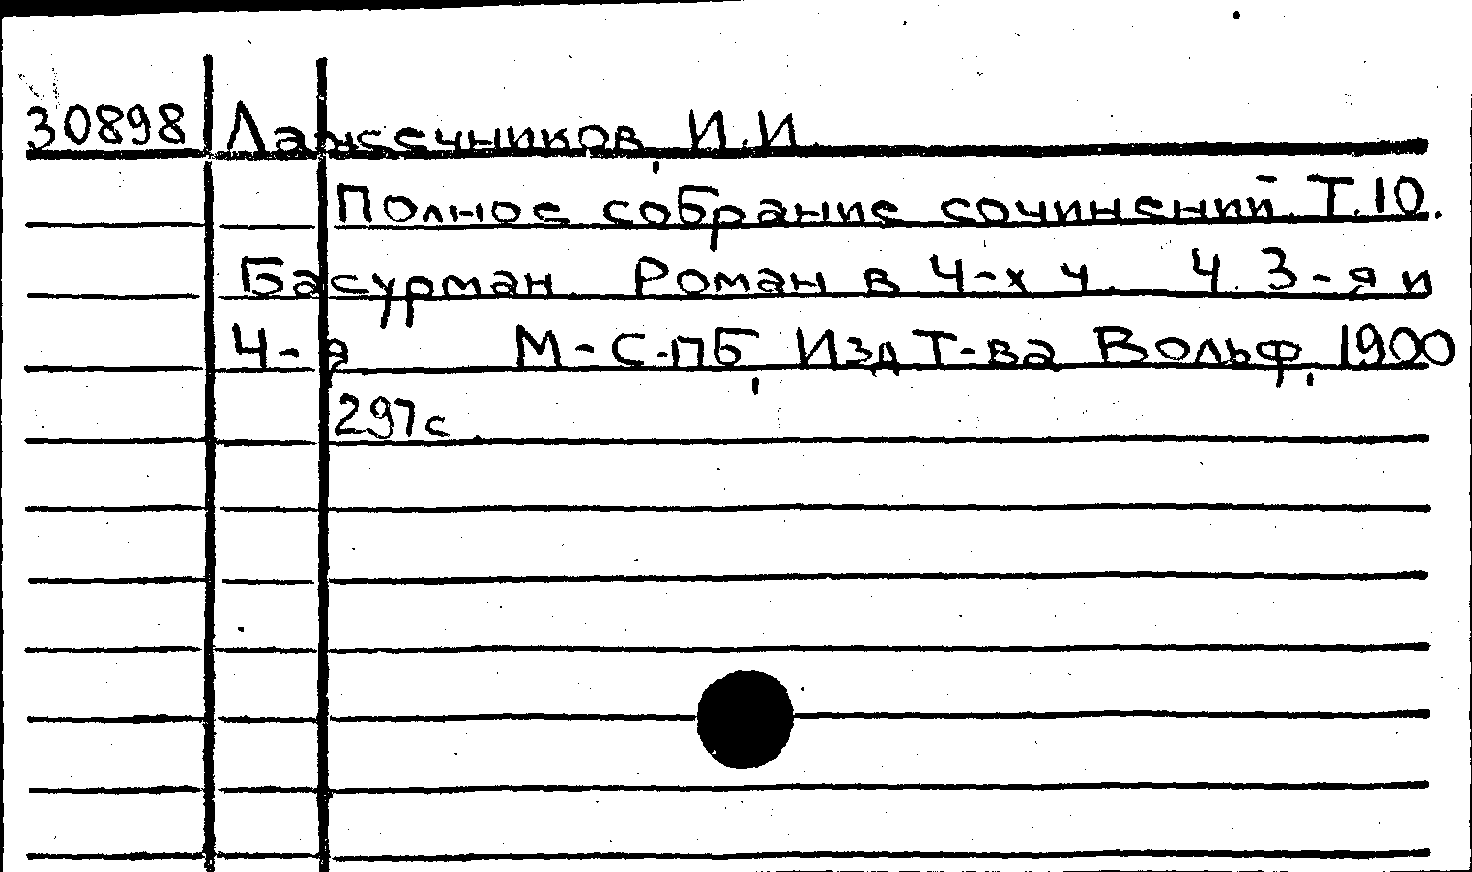 30898 Лажечников, И.И.
Полное собрание сочинений. Т.10.
Басурман. Роман в 4-х ч. Ч. 3-я и
4-я М.-С-ПБ, Изд Т-ва Вольф, 1900
297с.